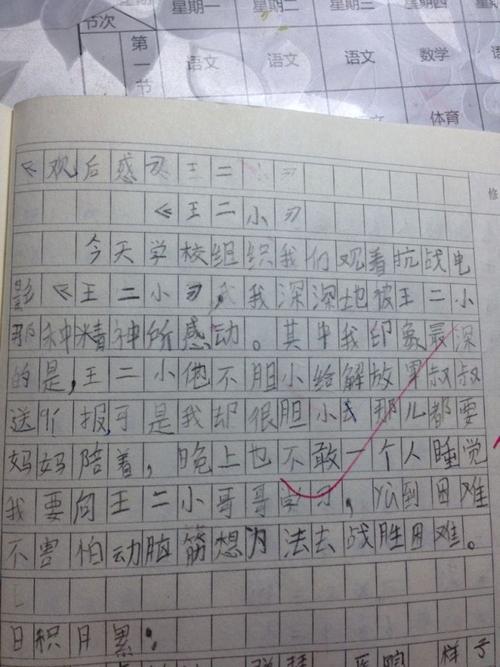 星期一 星期二 星期三 星期四
节次
第一节 语文 语文 语文 数学 语
体育
修
《观后感》王二小》
《王二小》
今天学校组织我们观看抗战电
影《王二小》,我深深地被王二小
那种精神所感动。其中我印象最深
的是,王二小他不胆小给解放军叔叔
送情报,可是我却很胆小去那儿都要
妈妈陪着,晚上也不敢一个人睡觉
我要向王二小哥哥学习,遇到困难
不害怕动脑筋想办法去战胜困难。
日积月累:
样子